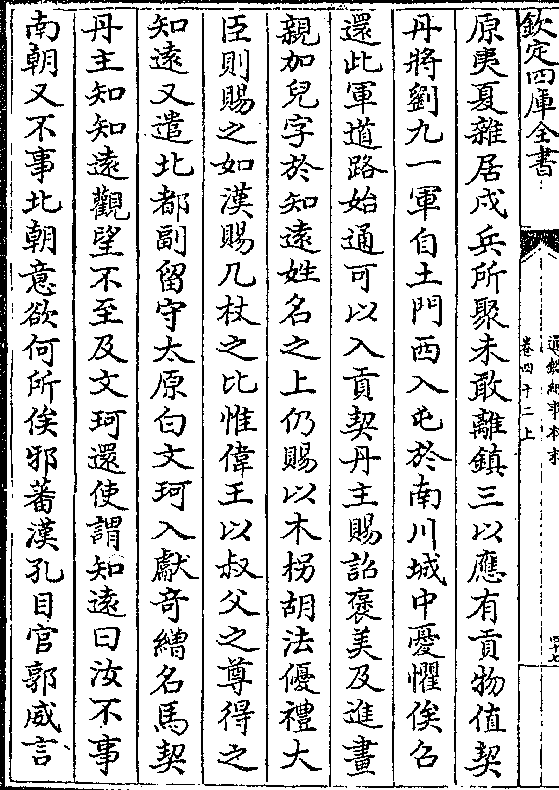 欽定四庫全書
通鑑紀事本末
卷四十二上
四十七
原夷夏雜居戍兵所聚未敢離鎮三以應有貢物值契
丹將劉九一軍自土門西入屯於南川城中憂懼俟召
還此軍道路始通可以入貢契丹主賜詔褒美及進畫
親加兒字於知遠姓名之上仍賜以木柺胡法優禮大
臣則賜之如漢賜几杖之比惟偉王以叔父之尊得之
知遠又遣北都副留守太原白文珂入獻奇繒名馬契
丹主知知遠觀望不至及文珂還使謂知遠曰汝不事
南朝又不事北朝意欲何所俟邪蕃漢孔目官郭威言